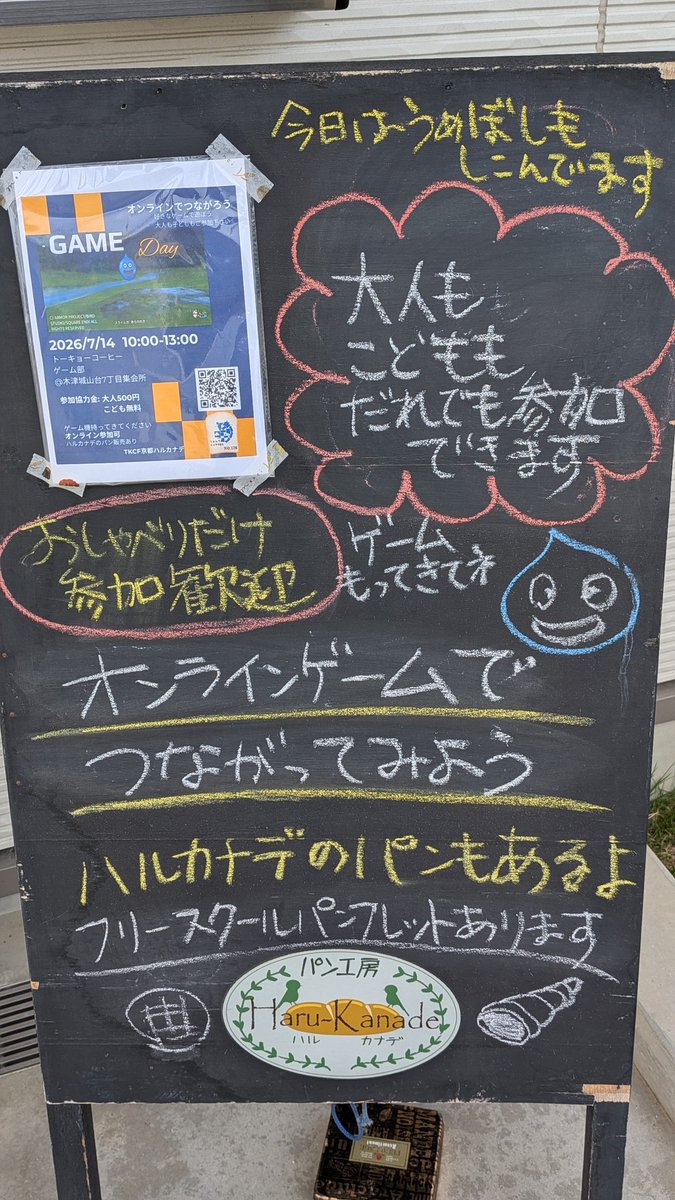 今日はうめぼしも
しこんでます
オンラインでつながろう
好きなゲームで遊ぼう
大人も子どももご参加下さい
GAME Day
© ARMOR PROJECT/BIRD
STUDIO/SQUARE ENIX ALL
RIGHTS RESERVED
2026/7/14 10:00-13:00
トーキョーコーヒー
ゲーム部
@木津城山台7丁目集会所
参加協力金: 大人500円
こども無料
ゲーム機持ってきてください
オンライン参加可
ハルカナデのパン販売あり
TKCF京都ハルカナデ
大人も
こどもも
だれでも参加
できます
おしゃべりだけ
参加歓迎
ゲーム
もってきてネ
オンラインゲームで
つながってみよう
ハルカナデのパンもあるよ
フリースクールパンフレットあります
パン工房
Haru-Kanade
ハル カナデ